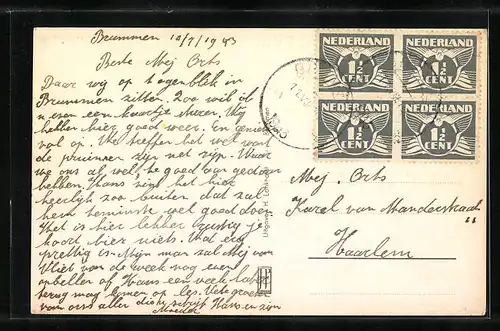 Brummen 10/7/1943
Beste Mej Orts
Daar wij op 't ogenblik in
Brummen zitten. Zoo wil ik
u even een kaartje sturen. Wij
hebben hier goed weer. En genieten
vol op. We treffen het wel want
de pruimen zijn net rijp. Waar
we ons al wel te goed aan gedaan
hebben. Hans vind het hier
heerlijk zoo buiten dat zal
hem tenminste wel goed doen
Het is hier lekker rustig je
hoort hier niets. Wat erg
prettig is. Mijn man zal Mej van
Vliet van de week nog even
opbellen of Hans een week later
terug mag komen op les. Vele groeten
van ons allen
Hans en zijn
NEDERLAND
1½
CENT
NEDERLAND
1½
CENT
NEDERLAND
1½
CENT
NEDERLAND
1½
CENT
Mej. Orts
Karel van Manderstraat
Haarlem